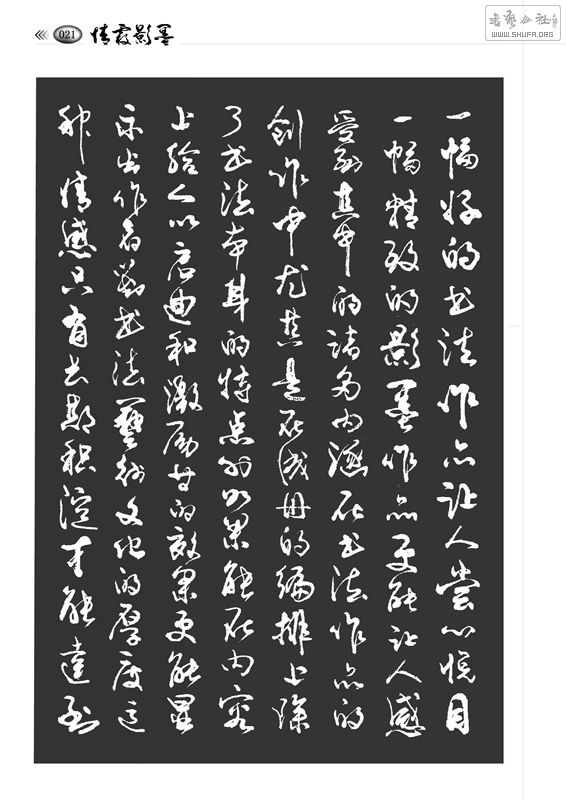 021 情霞影墨
書藝公社
WWW.SHUFA.ORG
一幅好的书法作品让人赏心悦目
一幅精致的影墨作品更能让人感
受到其中的诸多内涵在书法作品的
创作中尤其是在成册的编排上除
了书法本身的特点外如果能在内容
上给人以启迪和激励等的效果更能显
示出作者对书法藝術文化的厚度这
种情感只有长期积淀才能達到